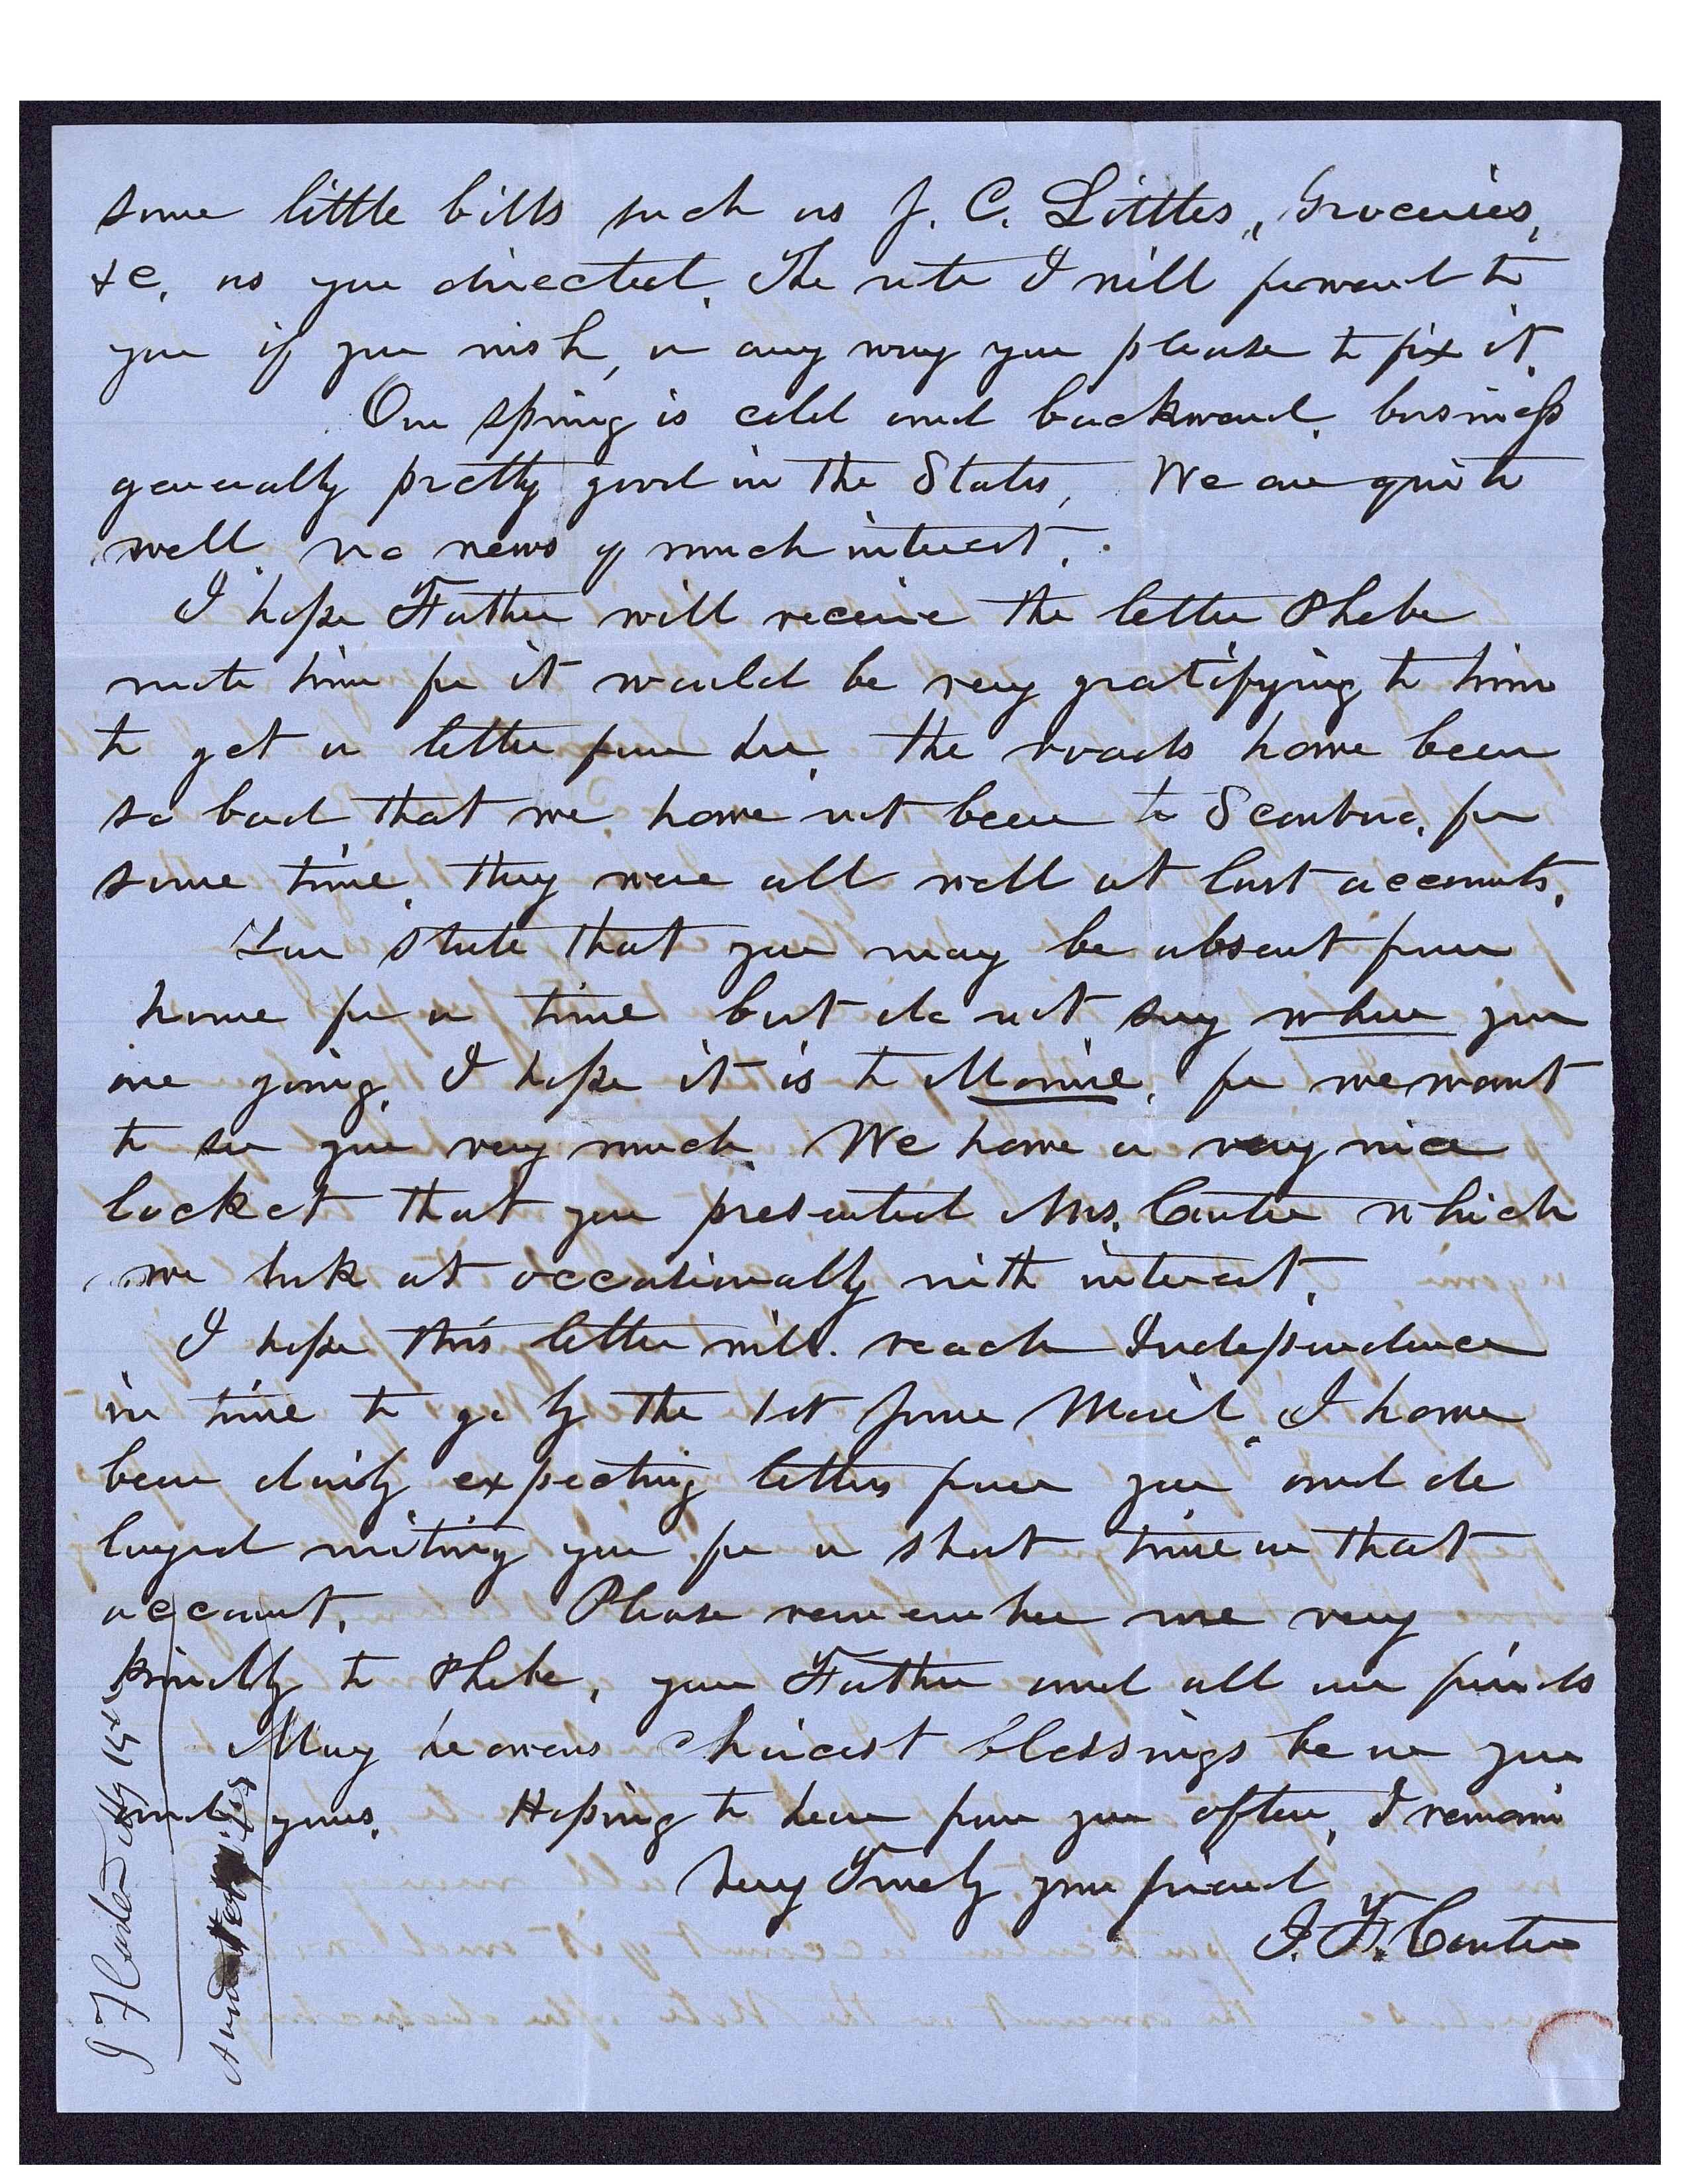 some little bills such as J. C. Littles, Groceries,
&c, as you directed. The note I will forward to
you if you wish, or any way you please to fix it.
Our spring is cold and backward. business
generally pretty good in the States, We are quite
well. no news of much interest.
I hope Father will receive the letter Phebe
wrote him for it would be very gratifying to him
to get a letter from her. the roads have been
so bad that we have not been to Scarboro, for
some time. they were all well at last accounts.
You state that you may be absent from
home for a time but do not say where you
are going. I hope it is to Maine, for we want
to see you very much. We have a very nice
locket that you presented Mrs. Carter which
we look at occasionally with interest.
I hope this letter will reach Independence
in time to go by the 1st June Mail. I have
been daily expecting letters from you and de
layed writing you for a short time on that
account. Please remember me very
kindly to Phebe, your Father and all our friends
May heavens choicest blessings be on you
and yours. Hoping to hear from you often, I remain
Very Truly your friend
J. F. Carter
J F Carter